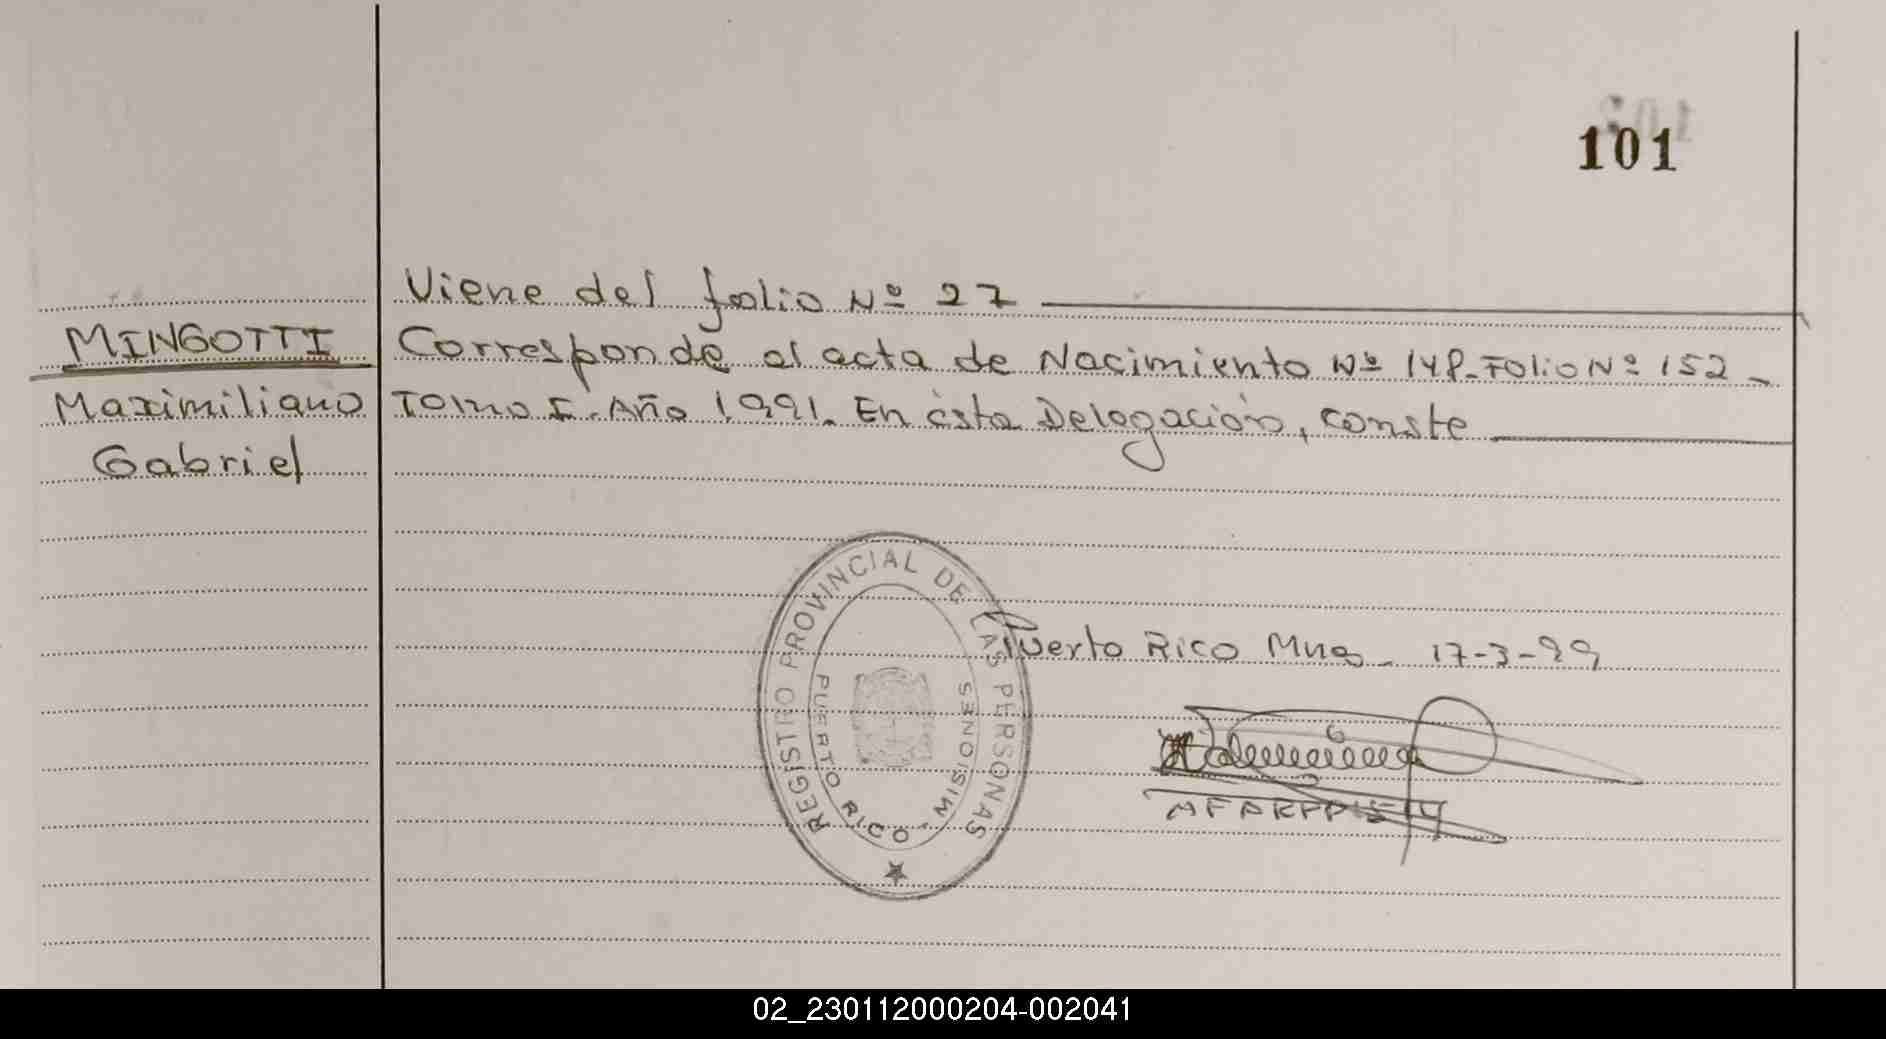 101
Viene del folio Nº 27
MINGOTTI
Maximiliano
Gabriel
Corresponde al acta de Nacimiento Nº 148-Folio Nº 152-
Tomo I. Año 1.991. En ésta Delegación, conste
REGISTRO PROVINCIAL DE LAS PERSONAS
PUERTO RICO - MISIONES
Puerto Rico Mnes. 17-3-99
02_230112000204-002041